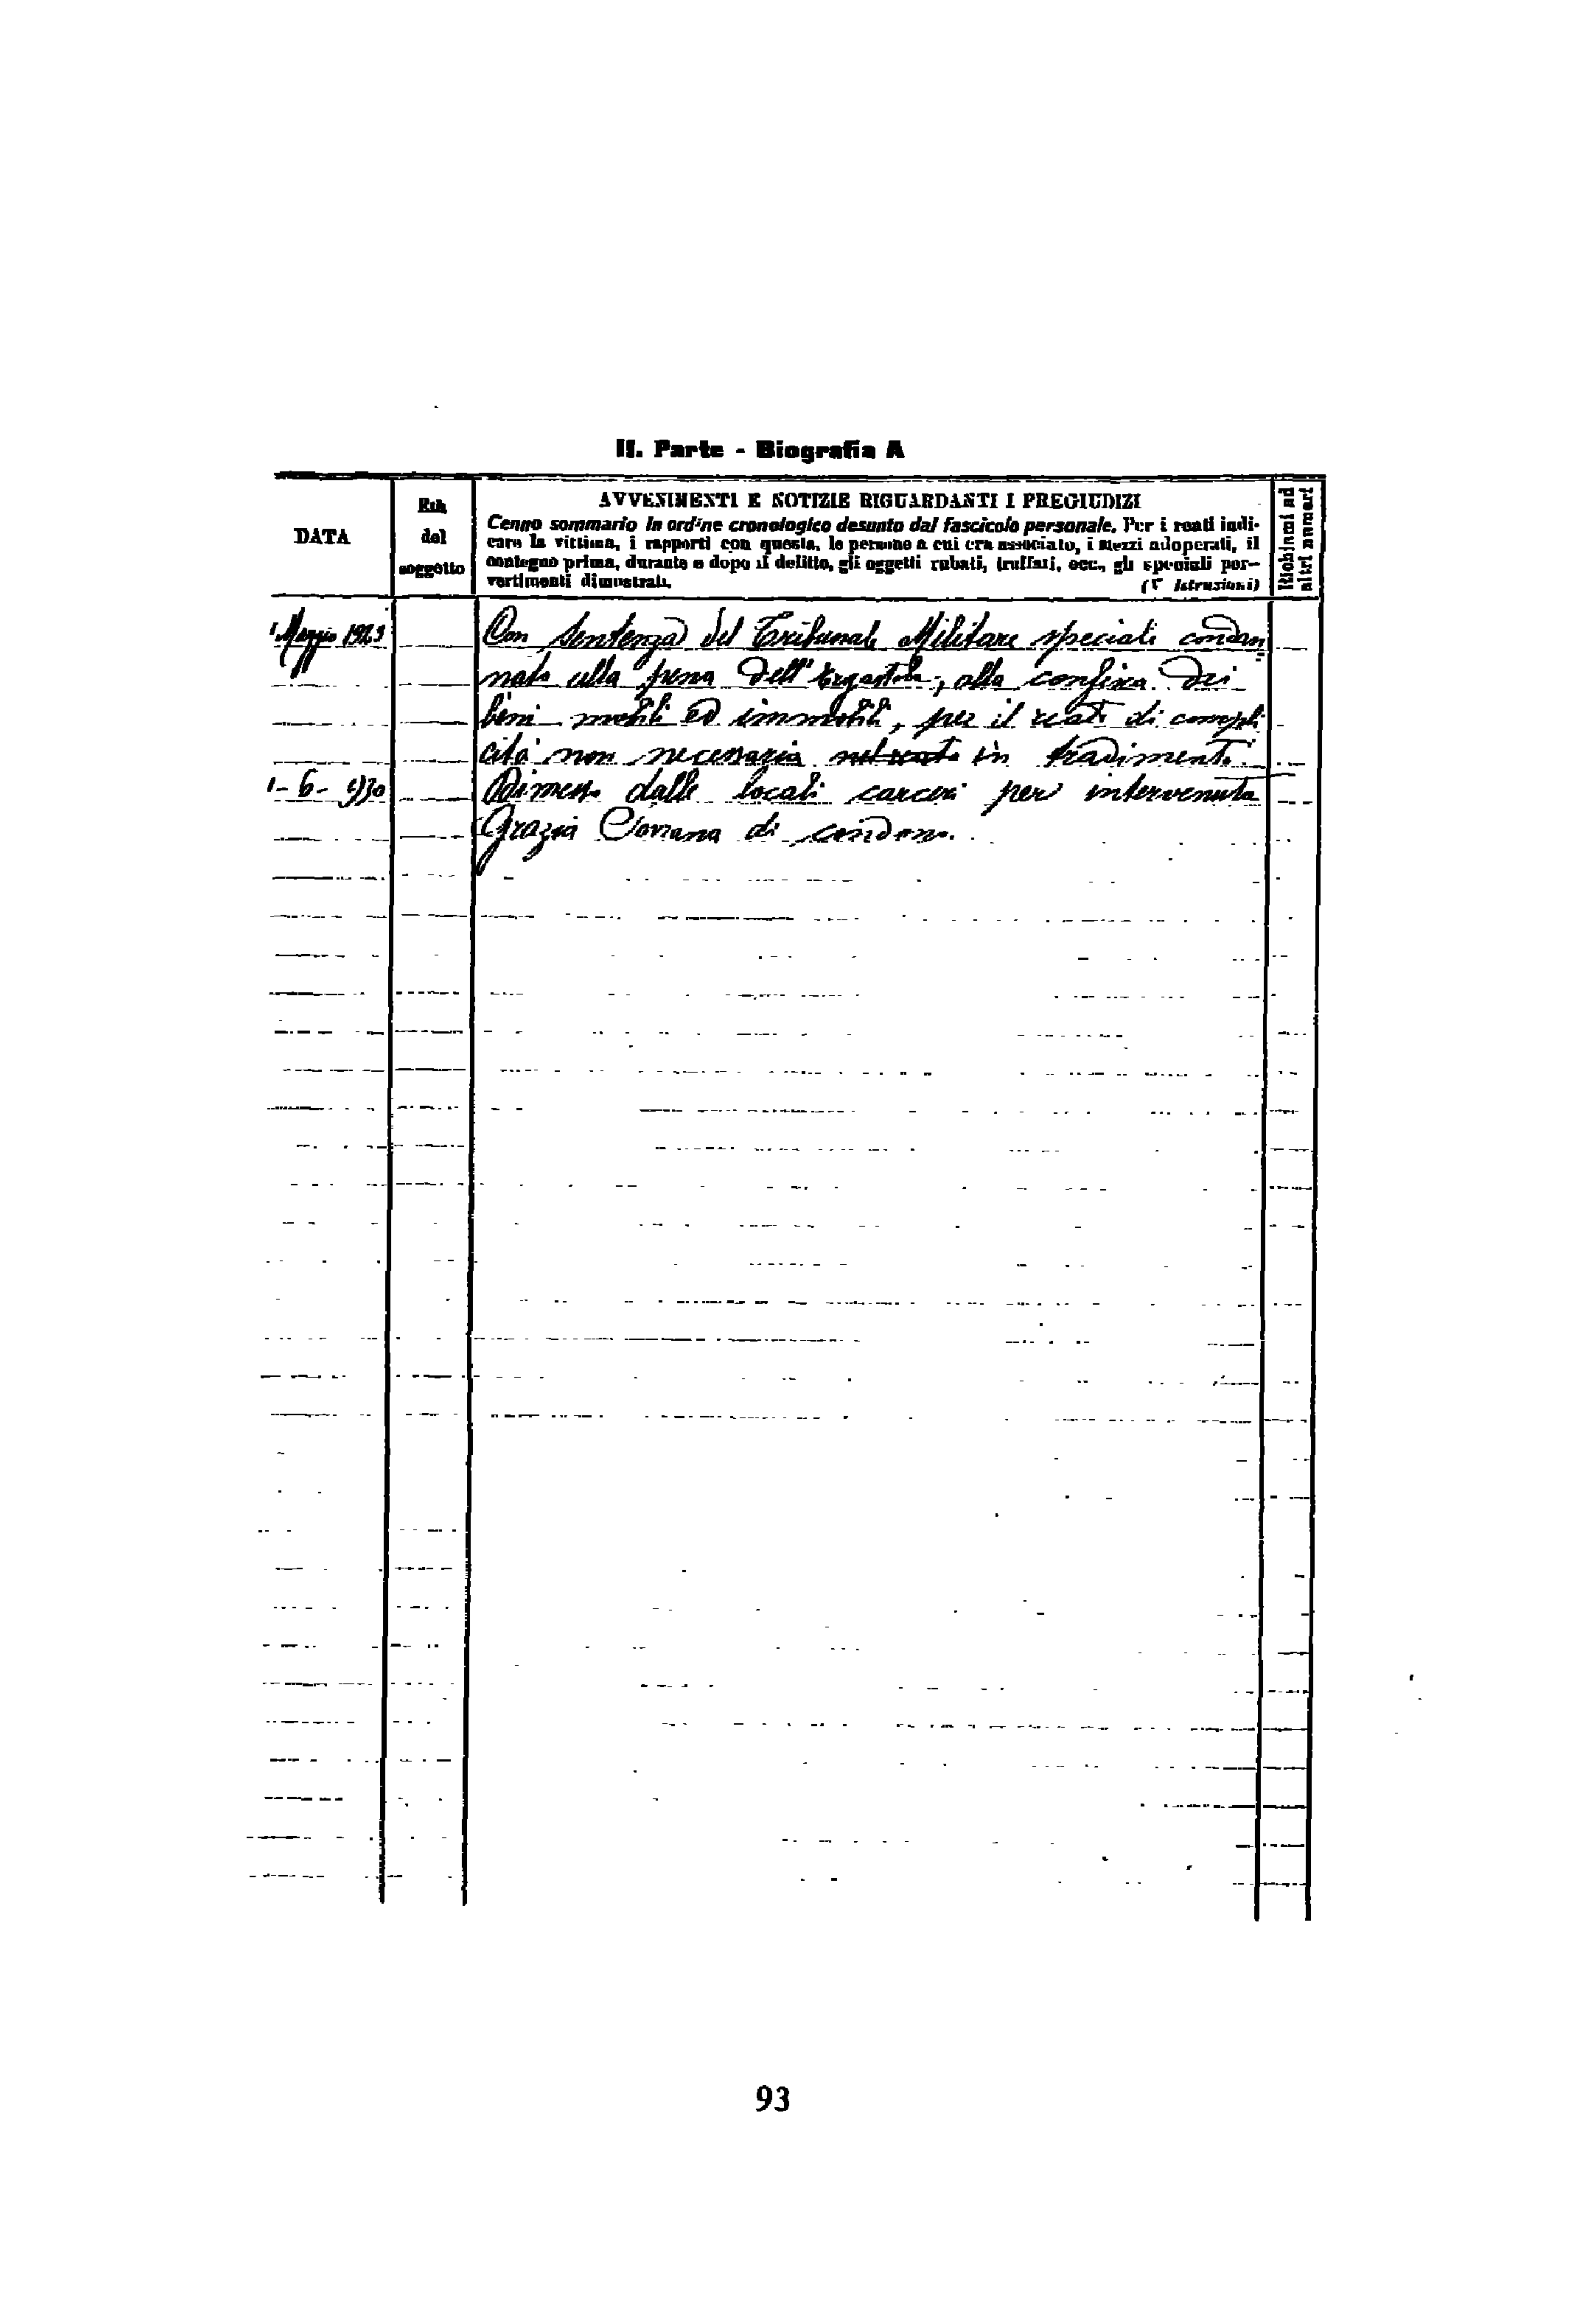 II. Parte - Biografia A
DATA
Età
del
soggetto
AVVENIMENTI E NOTIZIE RIGUARDANTI I PREGIUDIZI
Cenno sommario in ordine cronologico desunto dal fascicolo personale. Per i reati indi-
care la vittima, i rapporti con questa, le persone a cui era associato, i mezzi adoperati, il
contegno prima, durante e dopo il delitto, gli oggetti rubati, truffati, ecc., gli speciali per-
vertimenti dimostrati. (V Istruzioni)
Richiami ad
altri numeri
1 Maggio 1923
Con sentenza del Tribunale Militare speciale condan
nato alla pena dell'Ergastolo, alla confisca dei
beni mobili ed immobili, per il reato di compli
cità non necessaria nel reato in tradimento.
1-6-930
Dimesso dalle locali carceri per intervenuta
Grazia Sovrana di condono.
93